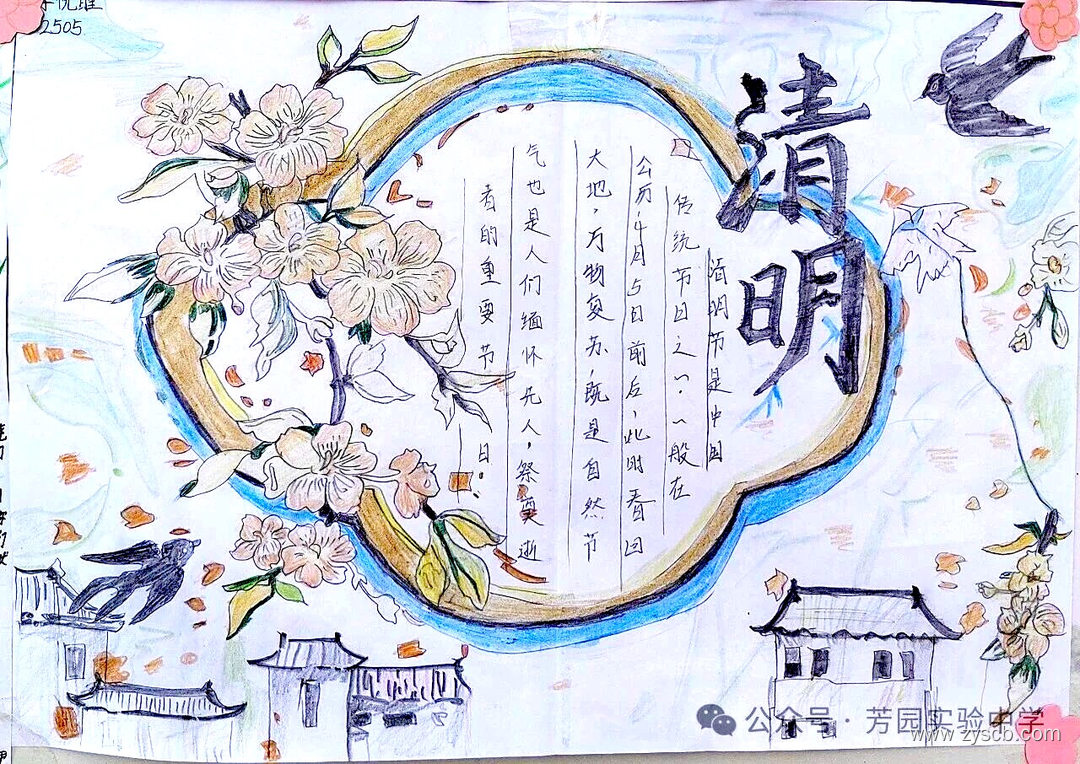 2505
清明
清明节是中国
传统节日之一.一般在
公历4月5日前后,此时春回
大地,万物复苏,既是自然节
气也是人们缅怀先人,祭奠逝
者的重要节日。
公众号·芳园实验中学
www.zyscb.com